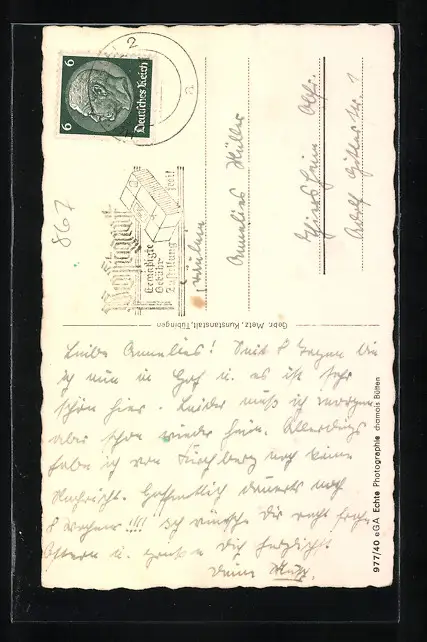 6
6
Deutsches Reich
2
a
867
Ermäßigte
Gebühr
Zustellung
Fräulein
Annelies Müller
Thiersheim Obfr.
Adolf Hitler Str. 1
Gebr. Metz, Kunstanstalt, Tübingen
977/40 eGA Echte Photographie chamois Bütten
Liebe Annelies! Seit 8 Tagen bin
ich nun in Hof u. es ist sehr
schön hier. Leider muß ich morgen
aber schon wieder heim. Allerdings
habe ich von noch keine
Nachricht. Hoffentlich dauerts noch
8 Wochen!!!! Ich wünsche Dir recht frohe
Ostern u. Dich herzlichst
Deine